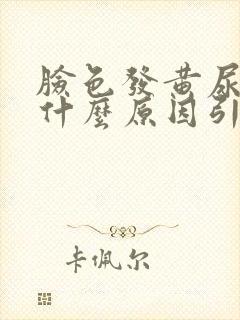 臉色發黃尿
什麼原因引
卡佩尔